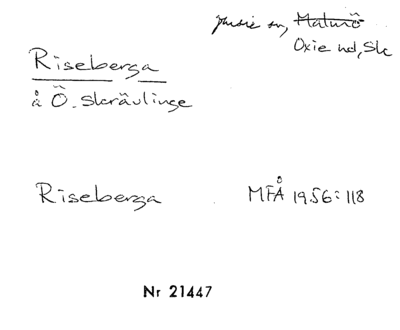 Husie sn, Malmö
Oxie hd, Sk
Riseberga
å Ö. Skrävlinge
Riseberga MFÅ 1956:118
Nr 21447